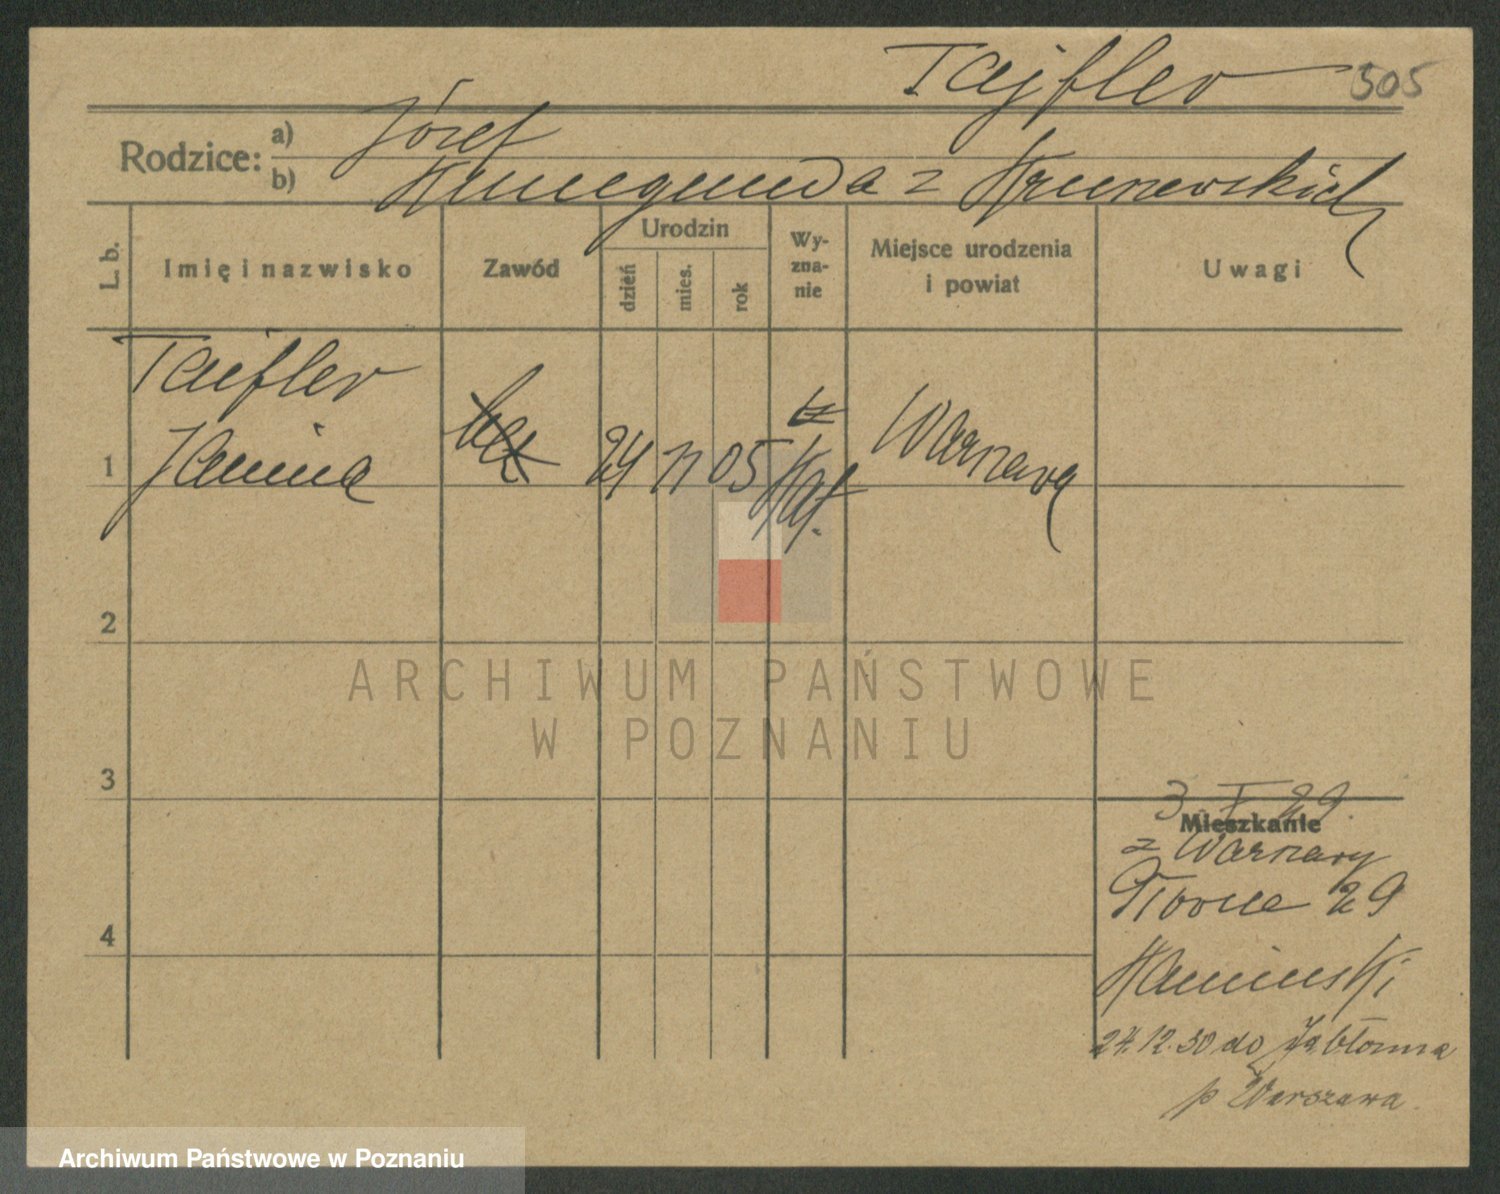 Tajfler 505
Rodzice: a) Józef
b) Kunegunda z
L. b. Imię i nazwisko Zawód Urodzin dzień mies. rok Wyznanie Miejsce urodzenia i powiat Uwagi
Tajfler
1 Janina 24 11 05 Kat. Warszawa
2
3
4
ARCHIWUM PAŃSTWOWE
W POZNANIU
3 X 29.
Mieszkanie
z Warszawy
29
Kamiński
24.12.30 do Jabłonna
p Warszawa.
Archiwum Państwowe w Poznaniu